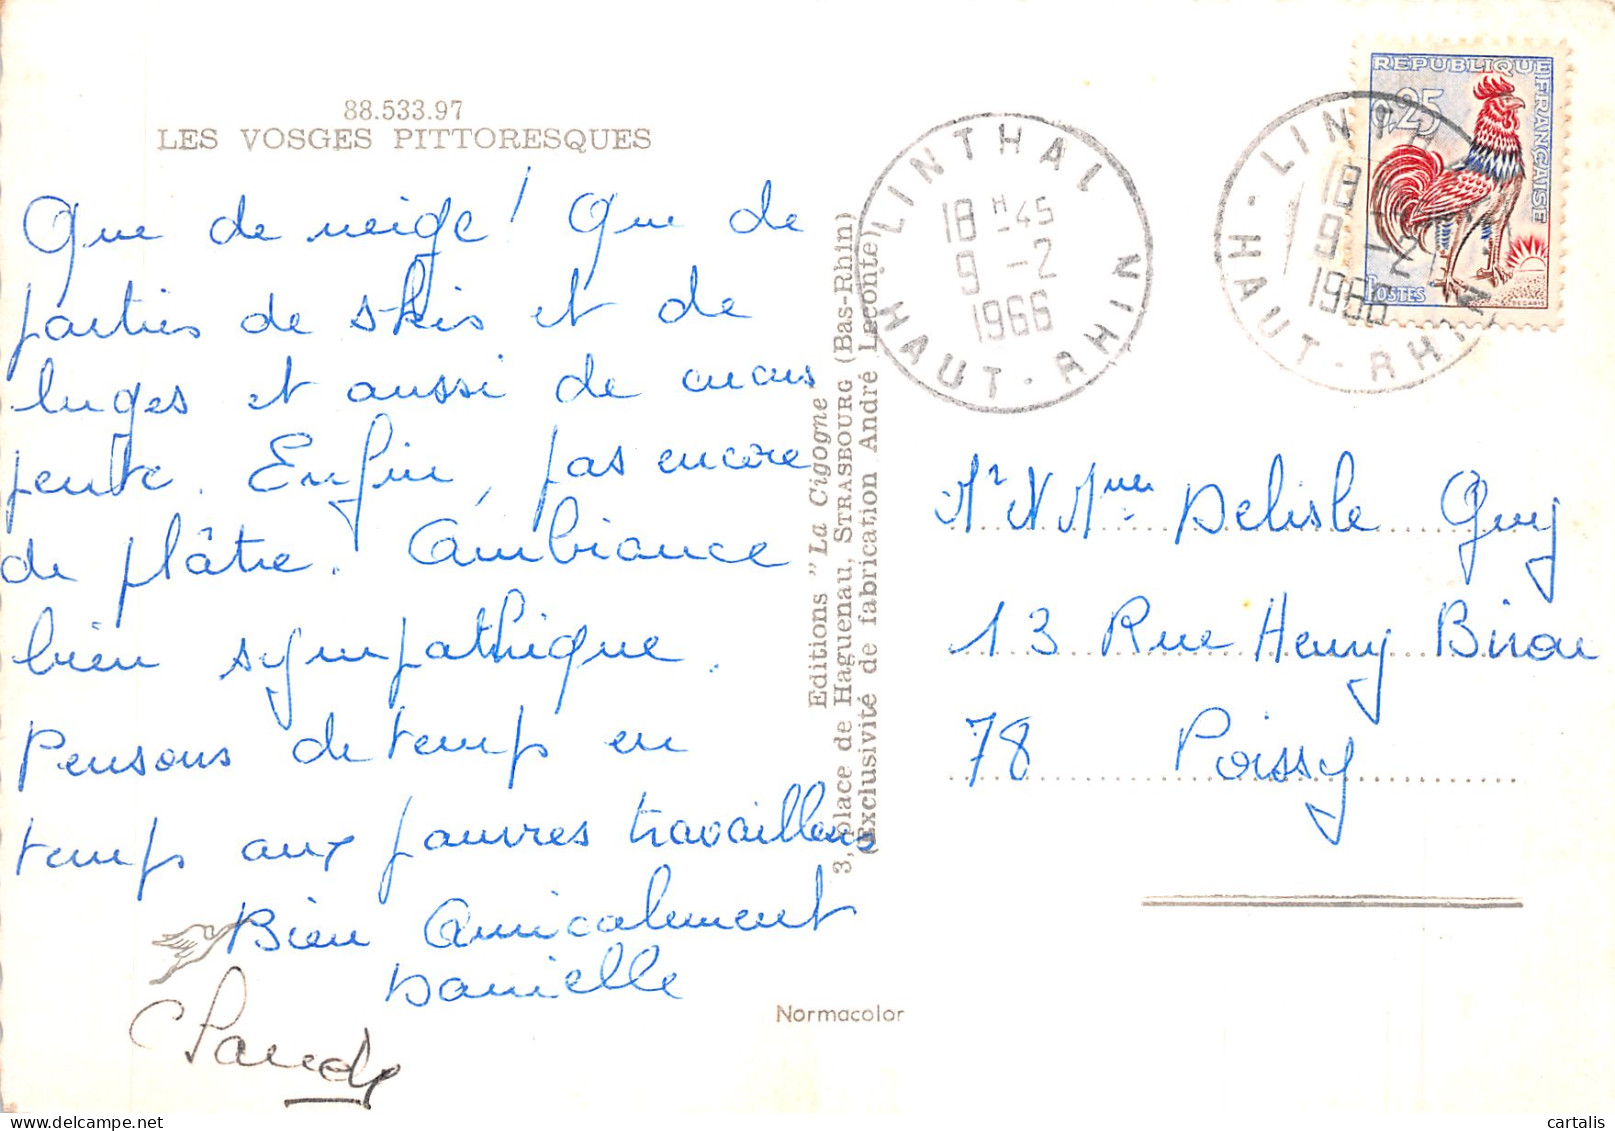 88.533.97
LES VOSGES PITTORESQUES
Que de neige! Que de
parties de skis et de
luges et aussi de
pente. Enfin, pas encore
de plâtre. Ambiance
bien sympathique.
Pensons de temps en
temps aux pauvres travailleurs
Bien Amicalement
Danielle
Claude
Editions "La Cigogne"
3, place de Haguenau, STRASBOURG (Bas-Rhin)
(Exclusivité de fabrication André Leconte)
Normacolor
LINTHAL
18 H 45
9 - 2
1966
HAUT-RHIN
LINTH
18
9 - 2
1966
HAUT-RHIN
REPUBLIQUE FRANÇAISE
0,25
POSTES
Mr et Mme Delisle Guy
13 Rue Henry Birou
78 Poissy
cartalis